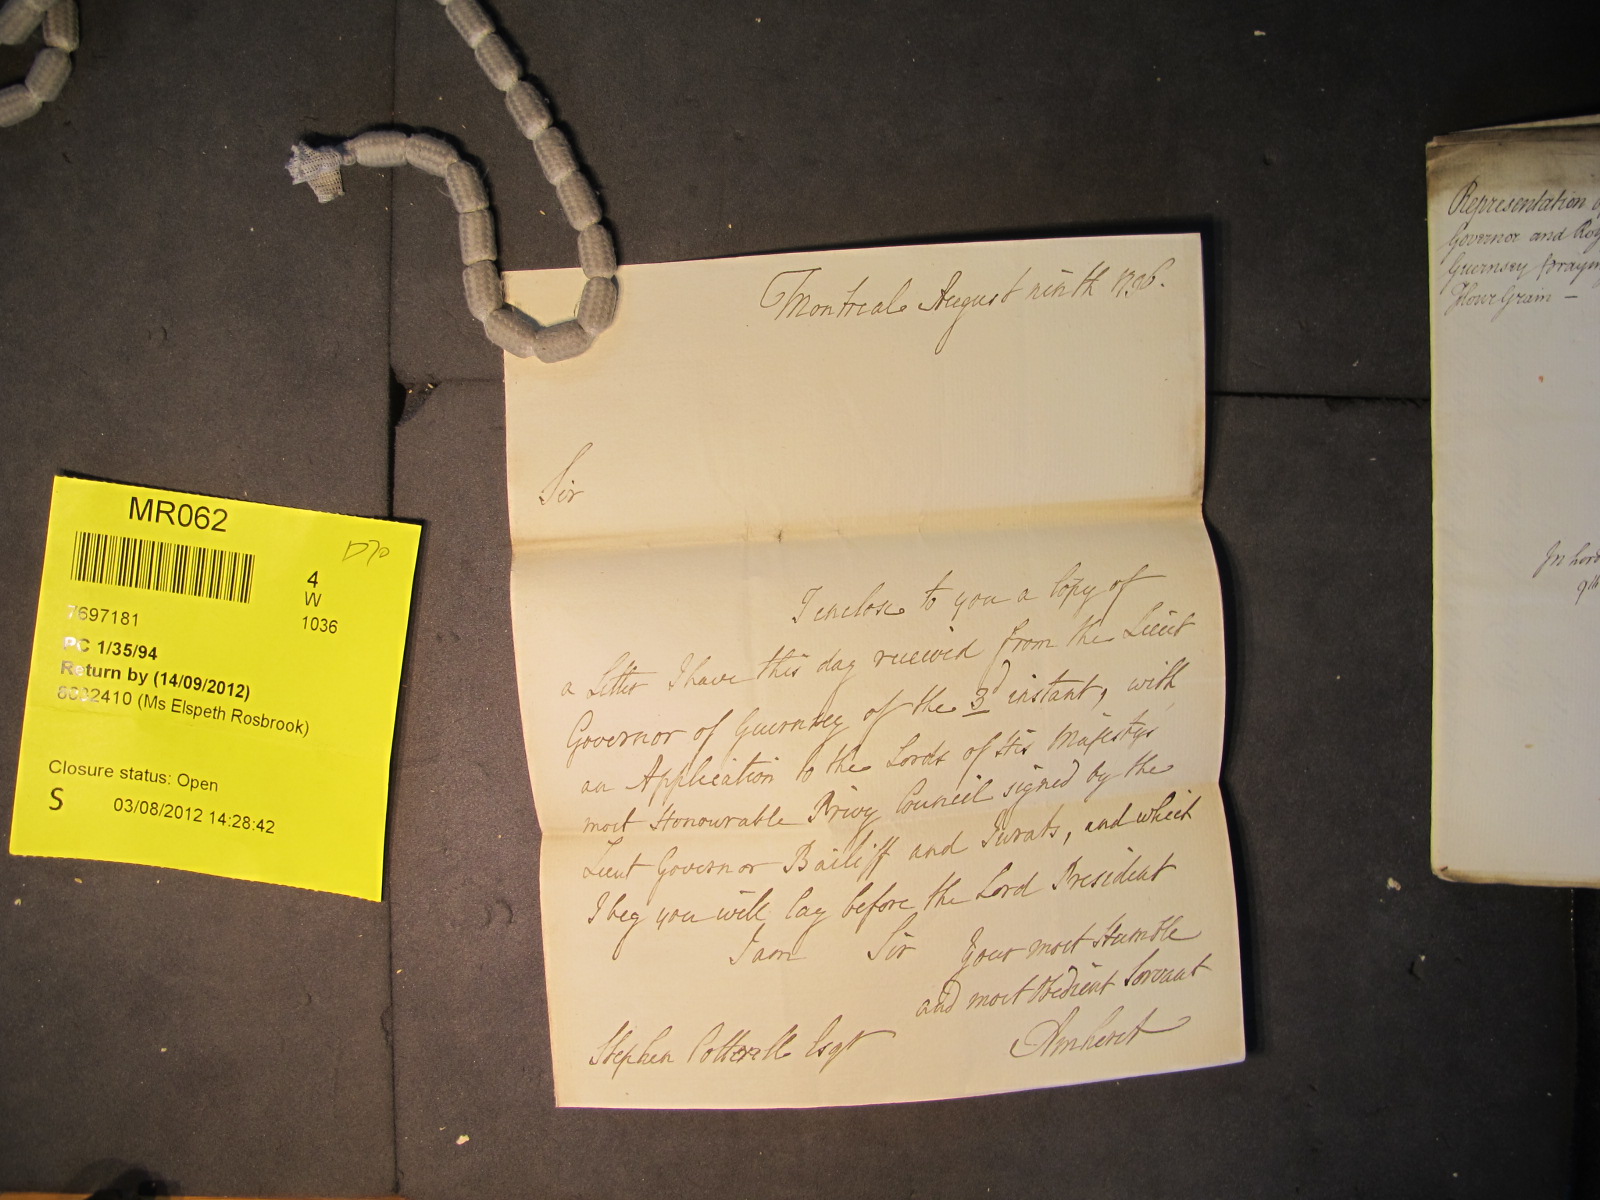 Montreal August ninth 1796.
Sir
I enclose to you a Copy of
a Letter I have this day received from the Lieut
Governor of Guernsey of the 3d instant, with
an Application to the Lords of His Majestys
most Honourable Privy Council signed by the
Lieut Governor Bailiff and Jurats, and which
I beg you will lay before the Lord President
I am Sir Your most Humble
and most Obedient Servant
Amherst
Stephen Cotterell Esqr
MR062
D70
4
W
1036
7697181
PC 1/35/94
Return by (14/09/2012)
8632410 (Ms Elspeth Rosbrook)
Closure status: Open
S 03/08/2012 14:28:42
Representation
Governor and
Guernsey
Flour Grain —
9th